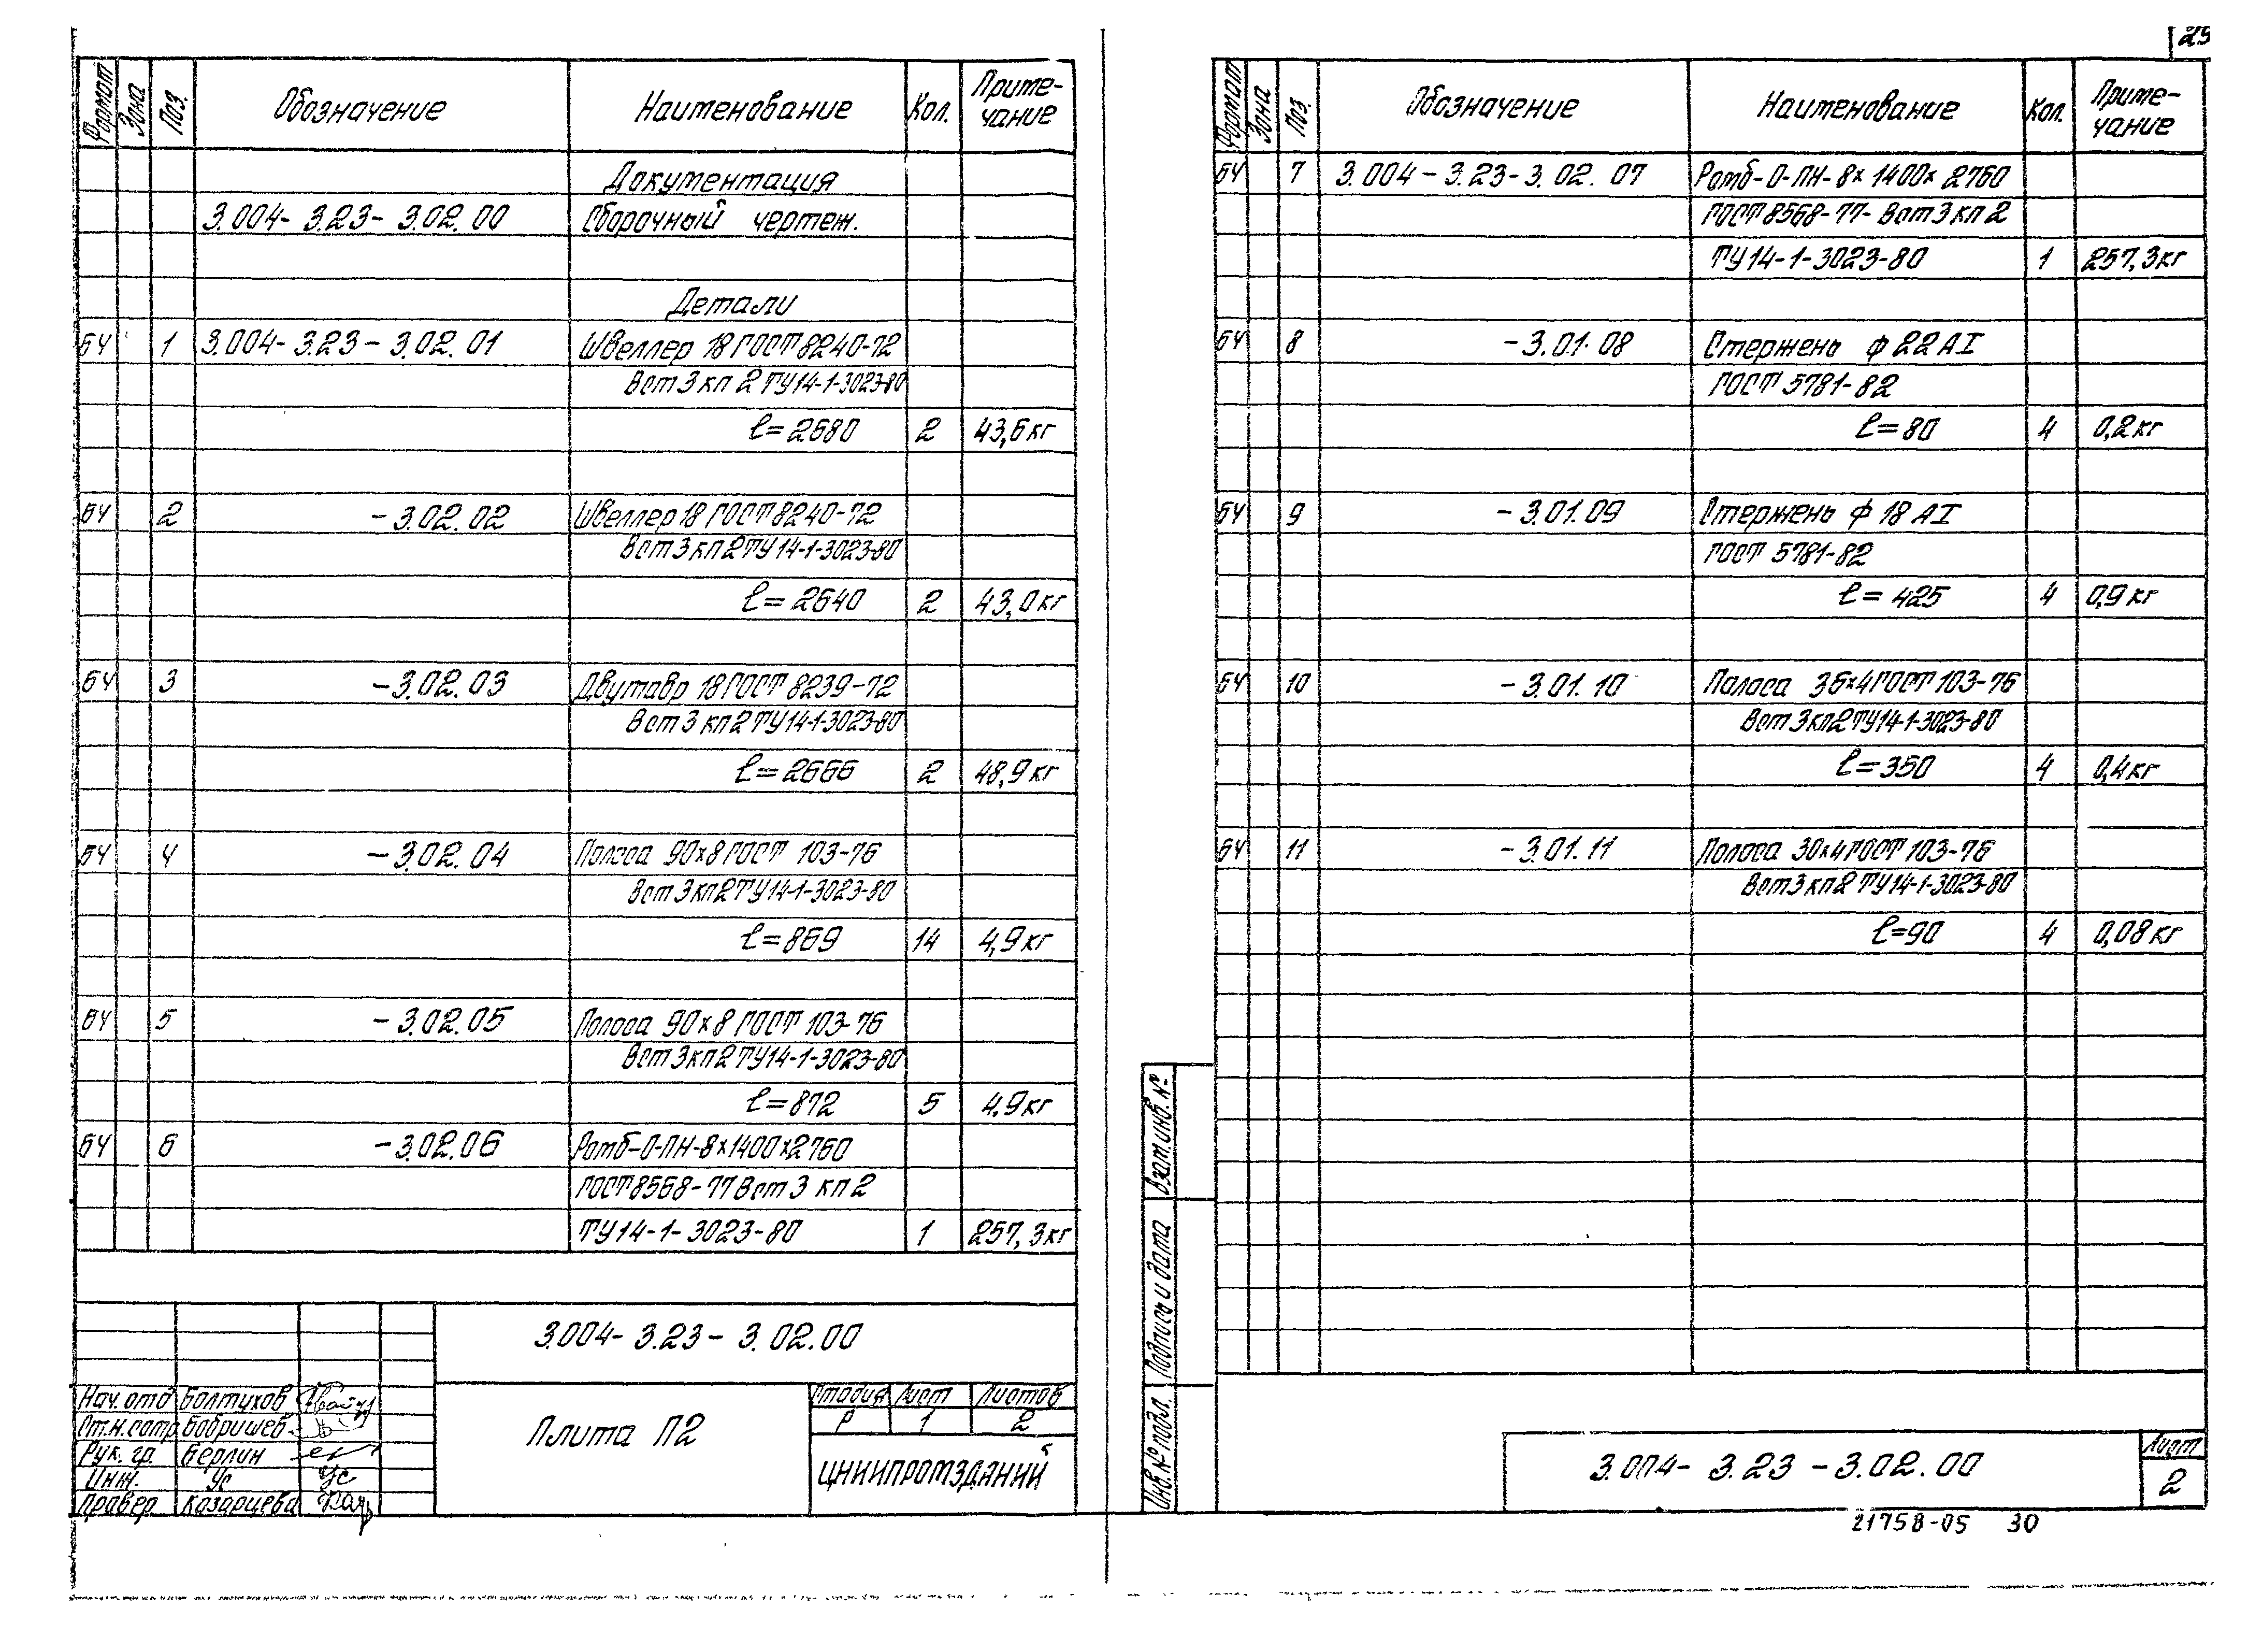 29
Формат Зона Поз. Обозначение Наименование Кол. Приме-
чание
Документация
3.004- 3.23- 3.02.00 Сборочный чертеж.
Детали
БЧ 1 3.004- 3.23- 3.02.01 Швеллер 18 ГОСТ 8240-72
Вст 3 кп 2 ТУ14-1-3023-80
ℓ=2680 2 43,6кг
БЧ 2 -3.02.02 Швеллер 18 ГОСТ 8240-72
Вст 3 кп 2 ТУ14-1-3023-80
ℓ=2640 2 43,0кг
БЧ 3 -3.02.03 Двутавр 18 ГОСТ 8239-72
Вст 3 кп 2 ТУ14-1-3023-80
ℓ=2666 2 48,9кг
БЧ 4 -3.02.04 Полоса 90х8 ГОСТ 103-76
Вст 3 кп 2 ТУ14-1-3023-80
ℓ=869 14 4,9кг
БЧ 5 -3.02.05 Полоса 90х8 ГОСТ 103-76
Вст 3 кп 2 ТУ14-1-3023-80
ℓ=872 5 4.9кг
БЧ 6 -3.02.06 Ромб-О-ПН-8х1400х2760
ГОСТ 8568-77 Вст 3 кп 2
ТУ14-1-3023-80 1 257,3кг
3.004- 3.23- 3.02.00
Нач. отд Болтухов
Ст.н.сотр Бобришев
Рук. гр. Берлин
Инж. Ус Ус
Провер Казарцева
Плита П2
Стадия Лист Листов
Р 1 2
ЦНИИПРОМЗДАНИЙ
Формат Зона Поз. Обозначение Наименование Кол. Приме-
чание
БЧ 7 3.004-3.23-3.02.07 Ромб-О-ПН-8х1400х2760
ГОСТ 8568-77- Вст 3 кп 2
ТУ14-1-3023-80 1 257,3кг
БЧ 8 -3.01.08 Стержень ф 22 АI
ГОСТ 5781-82
ℓ=80 4 0,2кг
БЧ 9 -3.01.09 Стержень ф 18 АI
ГОСТ 5781-82
ℓ=425 4 0,9кг
БЧ 10 -3.01.10 Полоса 36х4 ГОСТ 103-76
Вст 3 кп 2 ТУ14-1-3023-80
ℓ=350 4 0,4кг
БЧ 11 -3.01.11 Полоса 30х4 ГОСТ 103-76
Вст 3 кп 2 ТУ14-1-3023-80
ℓ=90 4 0,08кг
Взам.инв. №
Подпись и дата
Инв.№ подл.
3.004- 3.23-3.02.00
Лист
2
21758-05 30